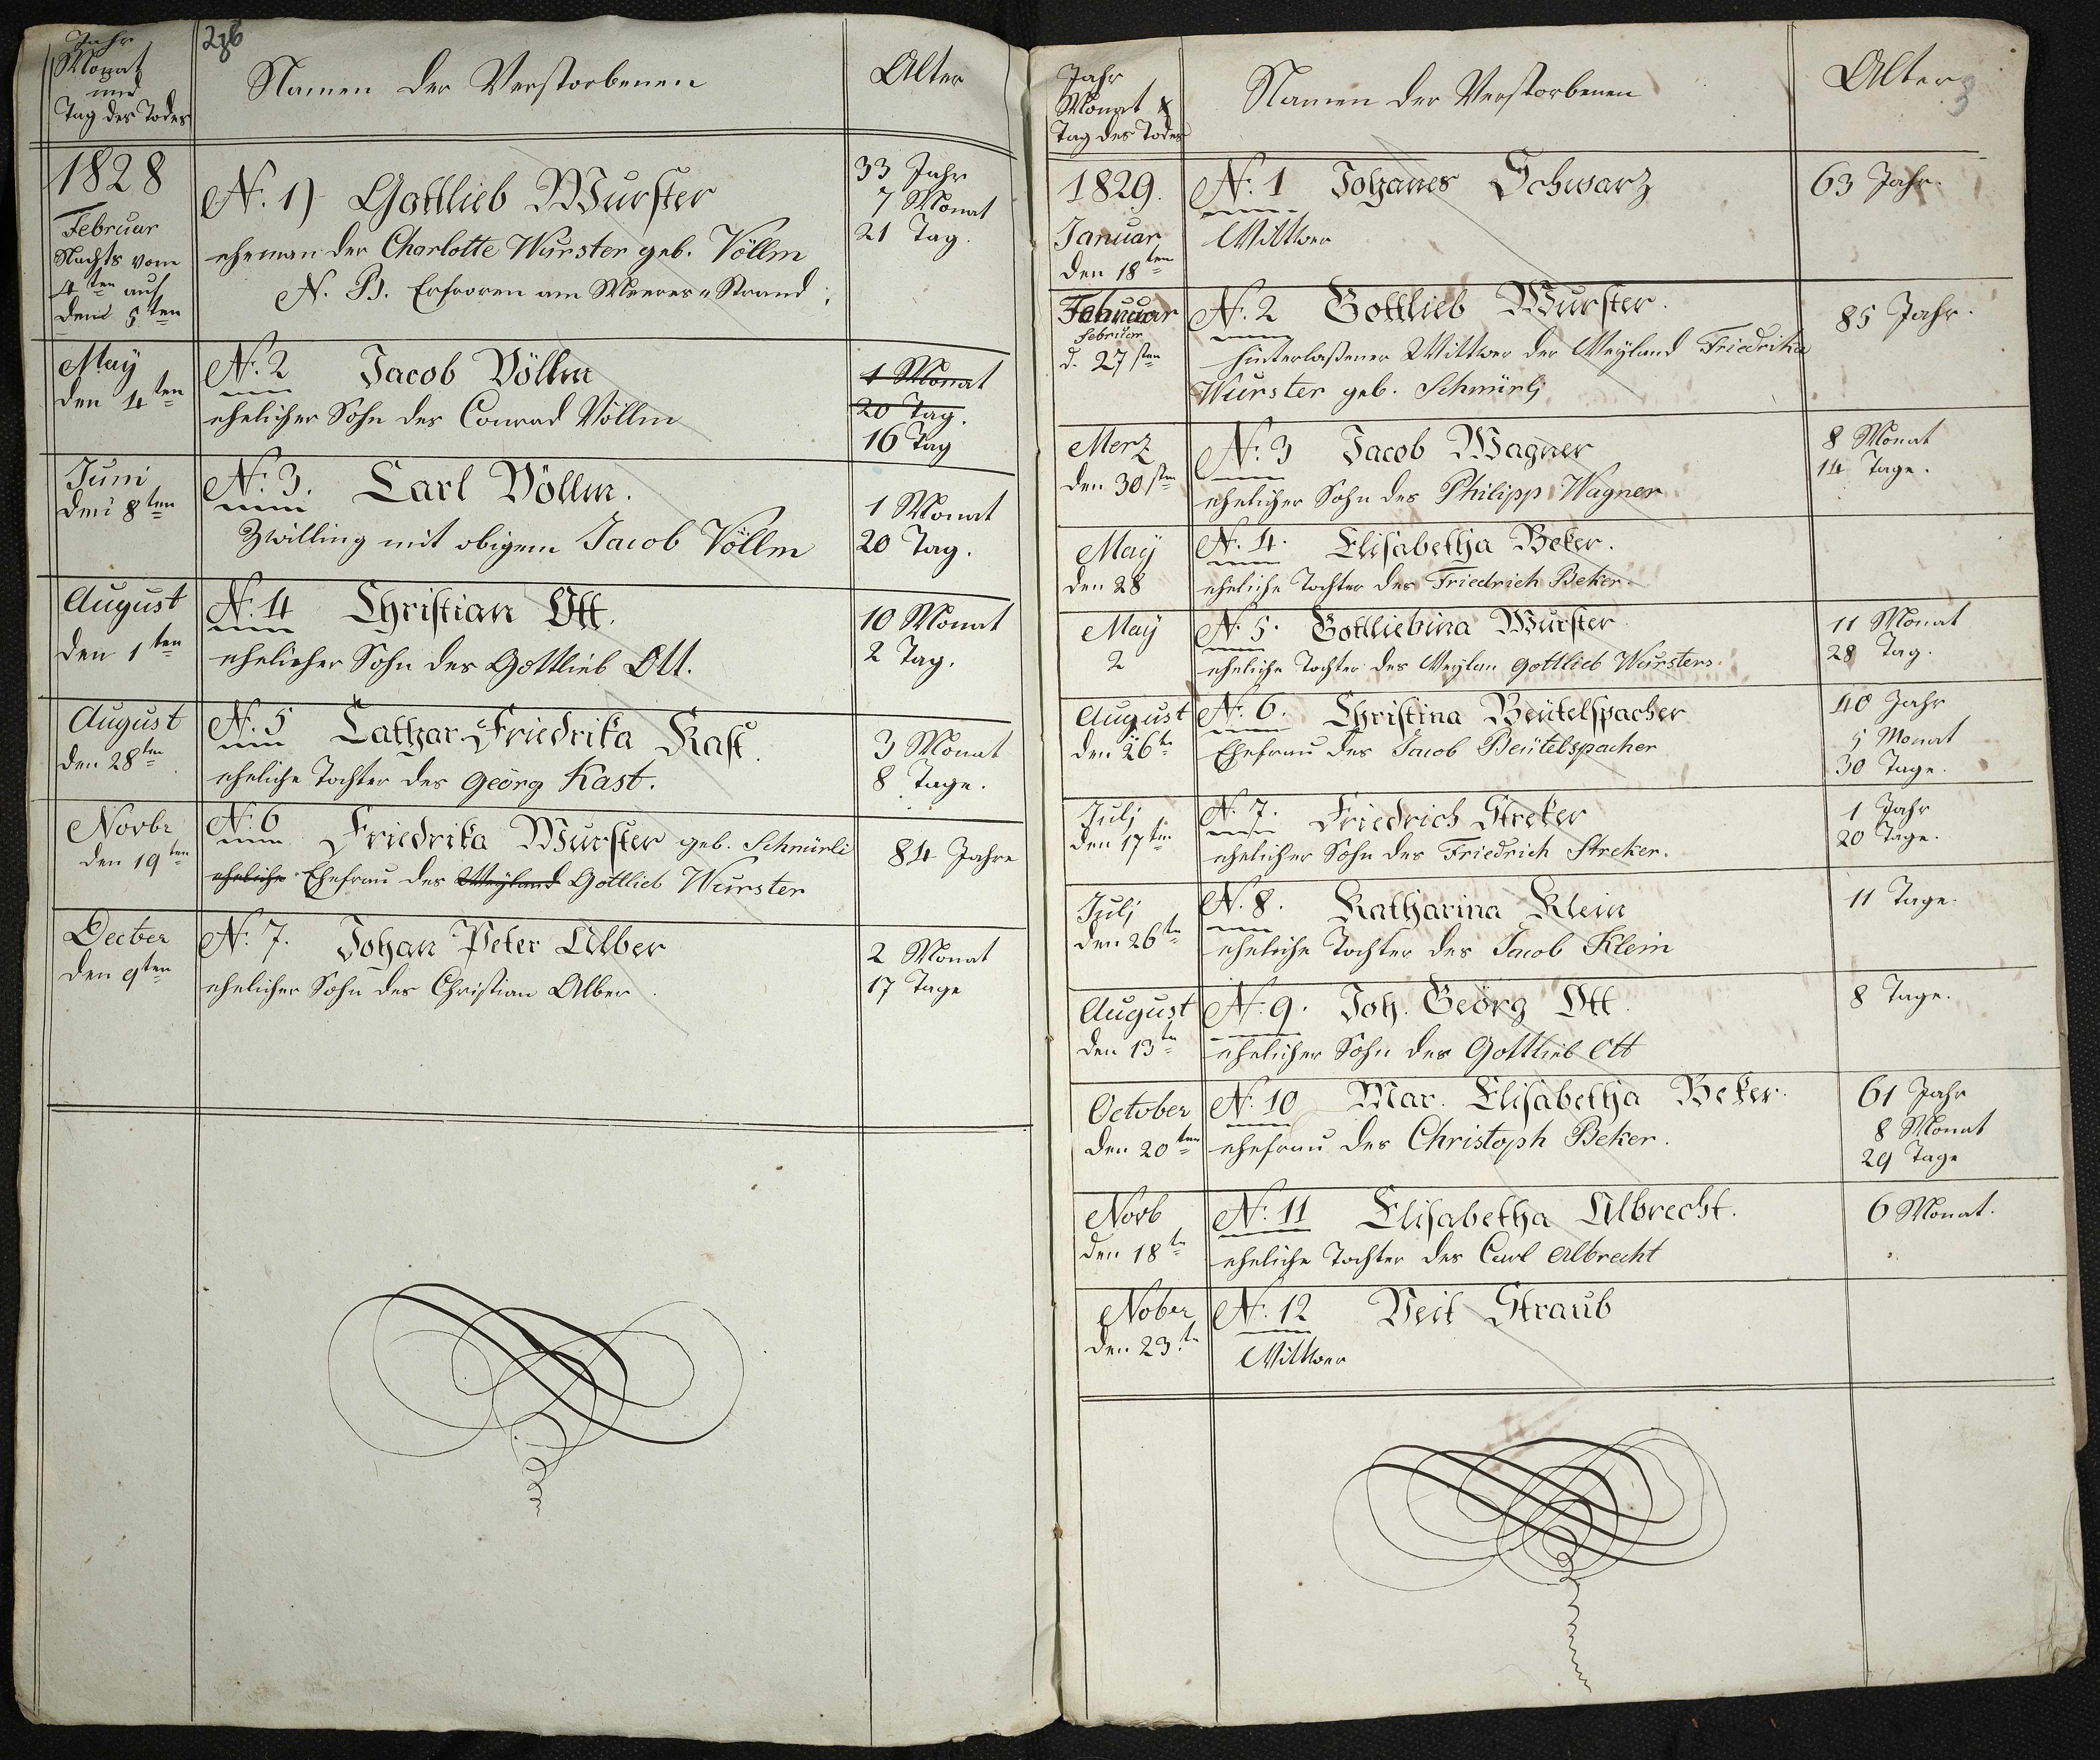 Jahr
Monat
und
Tag des Todes
Namen der Verstorbenen
Alter
1828
Februar
Nachts vom
4ten auf
den 5ten
N. 1) Gottlieb Wurster
eheman der Charlotte Wurster geb. Völlm
N. B. Erfroren am Meeres-Strand
33 Jahr
7 Monat
21 Tag.
May
den 4ten
N. 2 Jacob Völlm
ehelicher Sohn des Conrad Völlm
1 Monat
20 Tag.
16 Tag
Juni
den 8ten
N. 3. Carl Völlm.
Zwilling mit obigem Jacob Völlm
1 Monat
20 Tag.
August
den 1ten
N. 4 Christian Ott.
ehelicher Sohn des Gottlieb Ott.
10 Monat
2 Tag.
August
den 28ten
N. 5 Cathar. Friedrika Kast.
eheliche Tochter des Georg Kast.
3 Monat
8 Tage.
Novbr
den 19ten
N. 6 Friedrika Wurster geb. Schmürli
eheliche Ehefrau des Weyland Gottlieb Wurster
84 Jahre
Decber
den 9ten
N. 7. Johan Peter Alber
ehelicher Sohn des Christian Alber
2 Monat
17 Tage
Jahr
Monat &
Tag des Todes
Namen der Verstorbenen
Alter
3
1829.
Januar
den 18ten
N. 1 Johanes Schwarz
Wittwer
63 Jahr.
Februar
d. 27sten
N. 2 Gottlieb Wurster.
hinterlaßener Wittwer der Weyland Friedrika
Wurster geb. Schmürlj
85 Jahr.
Merz
den 30sten
N. 3 Jacob Wagner
ehelicher Sohn des Philipp Wagner
8 Monat
14 Tage.
May
den 28
N. 4. Elisabetha Beker.
eheliche Tochter des Friedrich Beker.
May
2
N. 5. Gottliebina Wurster
eheliche Tochter des Weylan Gottlieb Wursters.
11 Monat
28 Tag.
August
den 26tn
N. 6. Christina Beütelspacher
Ehefrau des Jacob Beütelspacher
40 Jahr
5 Monat
30 Tage.
Julj
den 17tn
N. 7. Friedrich Streker
ehelicher Sohn des Friedrich Streker.
1 Jahr
20 Tage.
Julj
den 26tn
N. 8. Katharina Klein
eheliche Tochter des Jacob Klein
11 Tage.
August
den 13tn
N. 9. Joh. Georg Ott.
ehelicher Sohn des Gottlieb Ott
8 Tage.
October
den 20ten
N. 10 Mar. Elisabetha Beker.
ehefrau des Christoph Beker.
61 Jahr
8 Monat
29 Tage
Novb
den 18tn
N. 11 Elisabetha Albrecht.
eheliche Tochter des Carl Albrecht
6 Monat.
Nober
den 23.tn
N. 12 Veit Straub
Wittwer